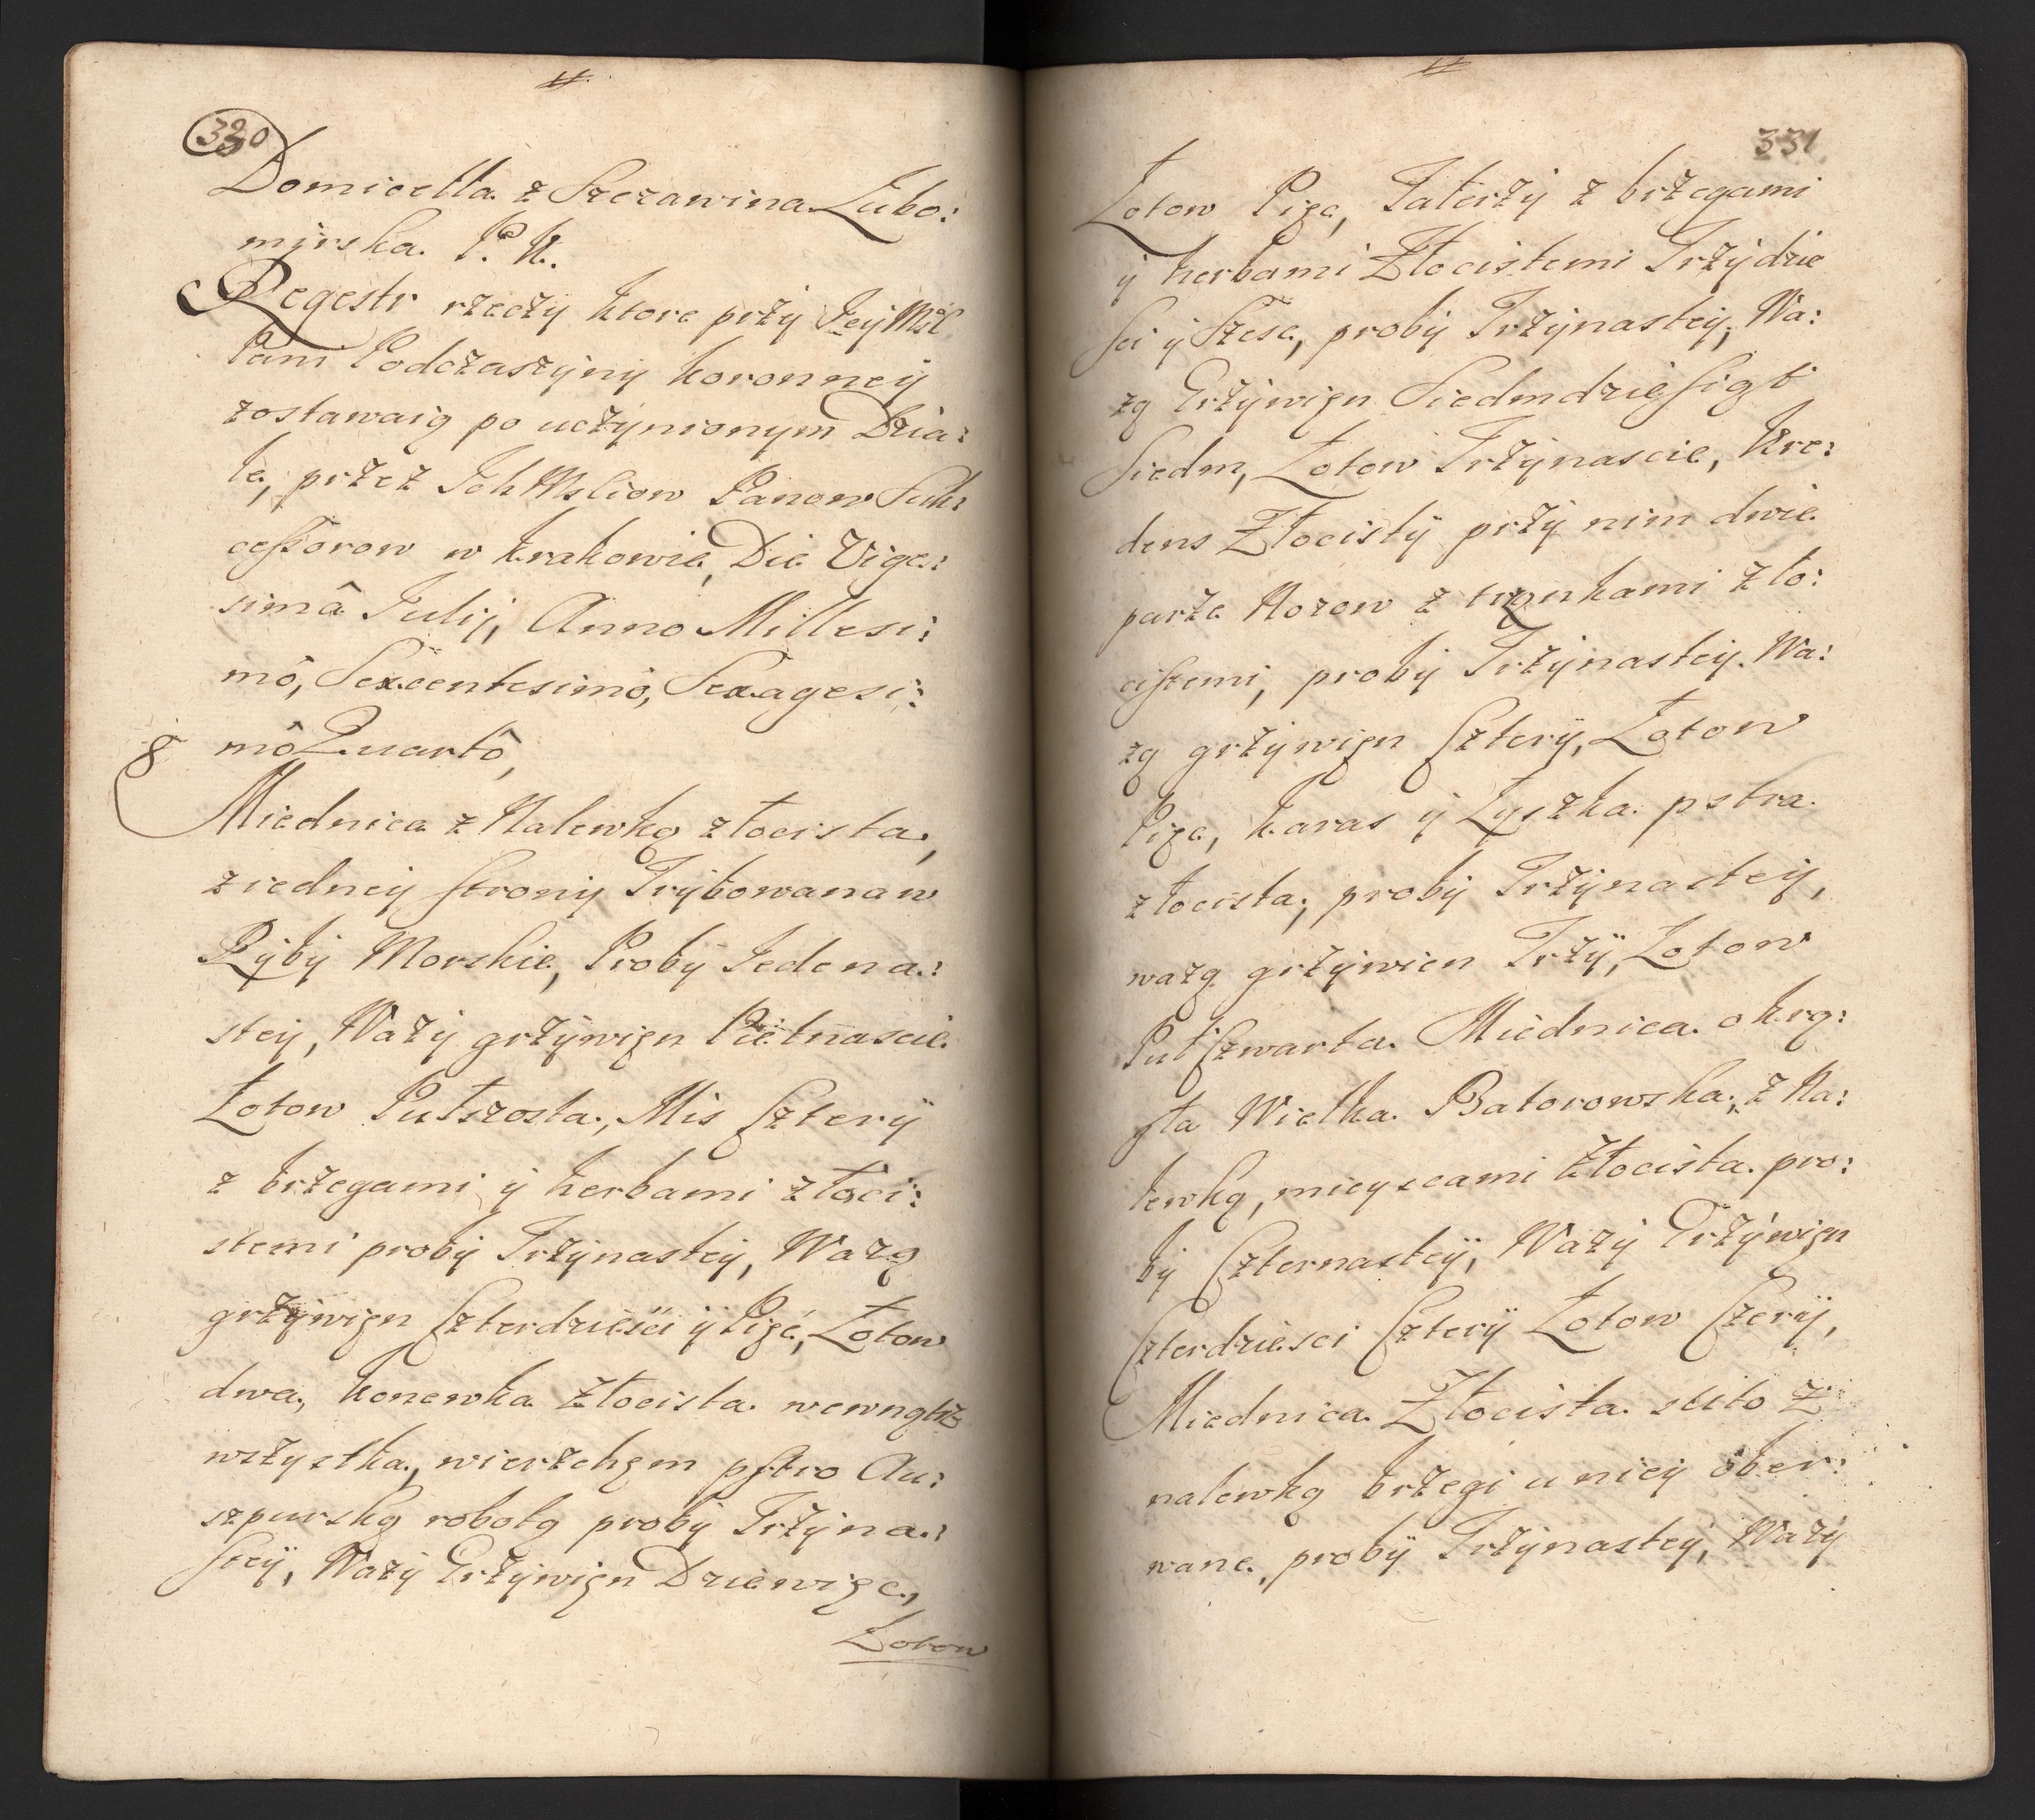 330
Domicella z Szczawina Lubo:
mirska. P. K.
Regestr rzeczÿ ktore przÿ JeÿMsć
Pani Podczaszÿnÿ Koronneÿ
zostawaią po uczÿnionÿm Dzia:
le, przez IchMsciow Panow Suk:
cessorow w Krakowie, Die Vige:
simâ Julij, Anno Millesi:
mô, Sexcentesimô, Sexagesi:
mô Quartô,
8
Miednica z Nalewką złocista,
z iedneÿ stronÿ Trÿbowana w
Rÿbÿ Morskie, Probÿ Iedena:
steÿ, Ważÿ grzÿwięn Piętnascie
Łotow Pułszosta, Mis czterÿ
z brzegami ÿ herbami złoci:
stemi probÿ Trzÿnasteÿ, Ważą
grzÿwięn czterdziesci ÿ Pięć, Łotow
dwa, Konewka Złocista wewnątrz
wszÿstka, wierzchęm pstro Au:
szpurską robotą probÿ Trzÿna:
steÿ, Ważÿ Grzÿwięn Dziewięc,
Łotow
331
Łotow Pięc, Talerzÿ z brzegami
ÿ herbami Złocistemi Trzÿdzie
sci ÿ Szesc, probÿ Trzÿnasteÿ, Wa:
zą Grzÿwięn Siedmdziesiąt
Siedm, Łotow Trzÿnascie, Kre:
dens Złocistÿ przÿ nim dwie
parze Nozow z trzonkami zło:
cistemi, probÿ Trzÿnasteÿ. Wa:
zą grzÿwięn czterÿ, Łotow
Pięc, Karas ÿ Łyszka pstra
złocista, probÿ Trzÿnasteÿ,
ważą grzÿwien Trzÿ, Łotow
Puł czwarta. Miednica okrą:
gła Wielka Batorowska, z Na:
lewką, mieÿscami Złocista pro:
bÿ Czternasteÿ, Ważÿ Grzÿwięn
Czterdziesci czterÿ Łotow czterÿ,
Miednica Złocista scito z
nalewką brzegi u nieÿ ober:
wane, probÿ Trzÿnasteÿ, Ważÿ